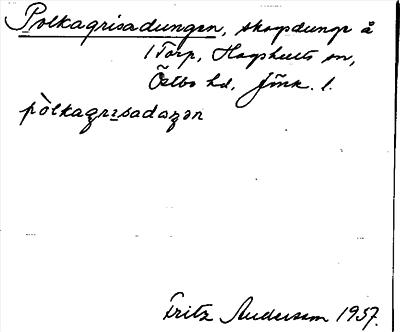 Polkagrisadungen, skogsdunge å
1 Torp, Hagshults sn,
Östbo hd, Jönk. l.
pòlkagrisadaŋən
Fritz Anderson 1957.